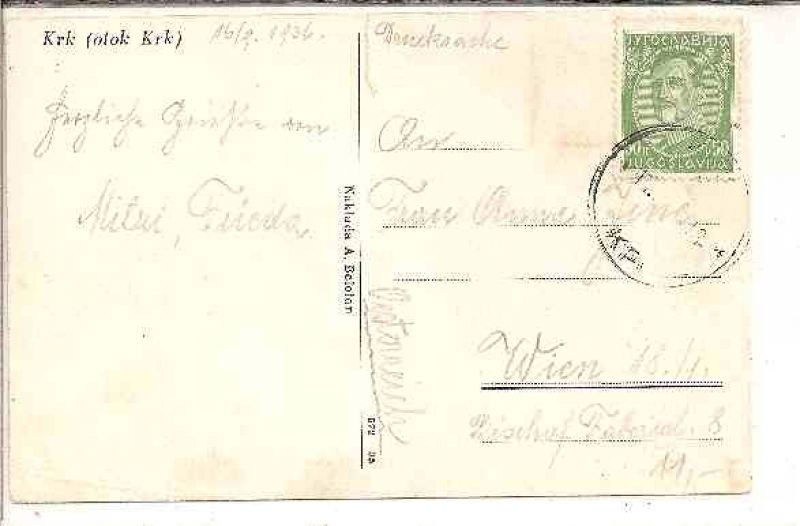 Krk (otok Krk) 16/9. 1936.
Herzliche Grüße von
Mitzi, Frieda
Naklada A. Belolan
Drucksache
ЈУГОСЛАВИЈА
JUGOSLAVIJA
An
Frau Anna
Wien 18./1.
8
Österreich
11,-